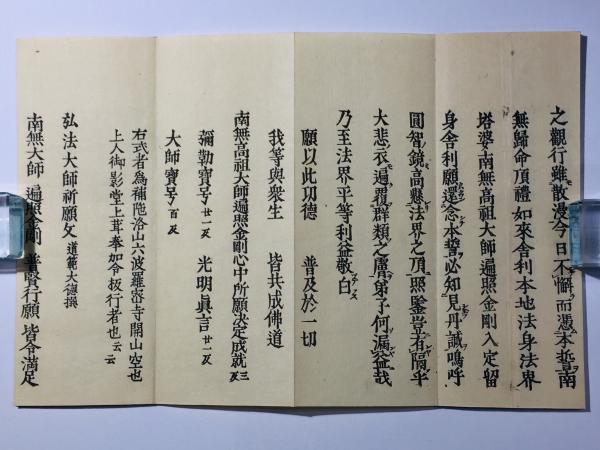 之觀行雖散漫今日不懈而憑本誓南
無歸命頂禮如來舎利本地法身法界
塔婆南無高祖大師遍照金剛入定留
身舎利願還念本誓必知見丹誠嗚呼
圓智鏡高懸法界之頂照鑒豈有隔乎
大悲衣遍覆群類之膚弟子何漏益哉
乃至法界平等利益敬白
願以此功德 普及於一切
我等與衆生 皆共成佛道
南無高祖大師遍照金剛心中所願決定成就三反
彌勒寶号廿一反 光明真言廿一反
大師寶号百反
右式者為補陁洛山六波羅宻寺開山空也
上人御影堂上葺奉如令扳行者也云云
弘法大師祈願文道範大德撰
南無大師遍照金剛 普賢行願皆令満足